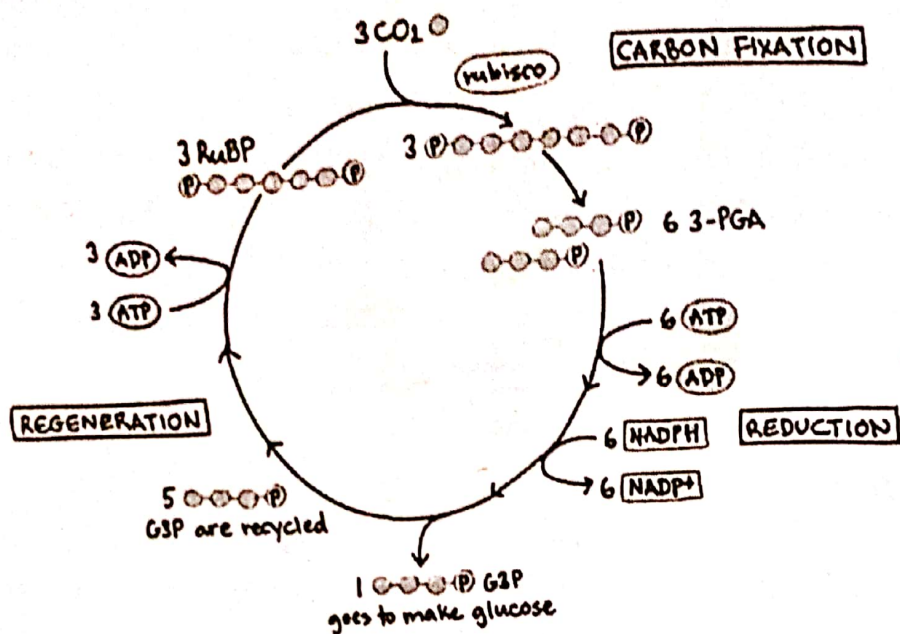 3CO2
CARBON FIXATION
rubisco
3 RuBP
P P
3 P P
P 6 3-PGA
P
3 ADP
3 ATP
6 ATP
6 ADP
REGENERATION
6 NADPH
REDUCTION
6 NADP+
5 P
G3P are recycled
1 P G3P
goes to make glucose